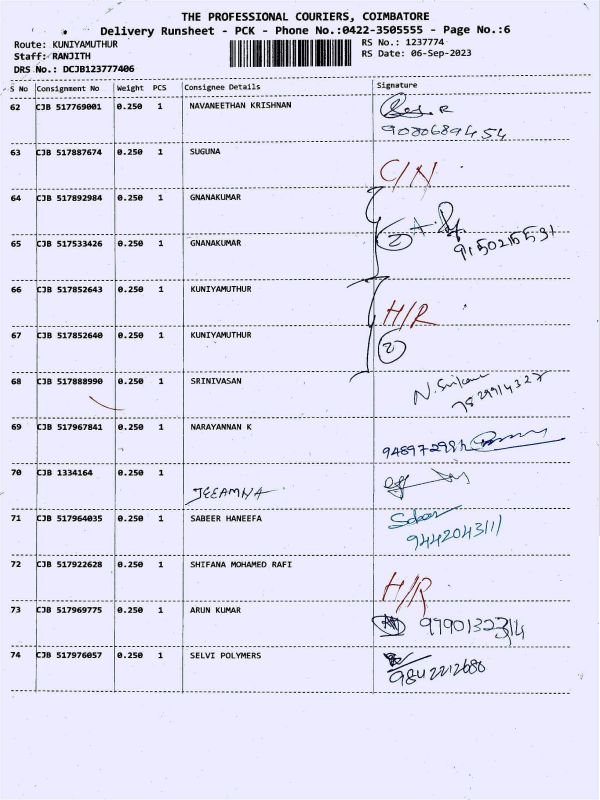 THE PROFESSIONAL COURIERS, COIMBATORE
Delivery Runsheet - PCK - Phone No.:0422-3505555 - Page No.:6
Route: KUNIYAMUTHUR
RS No.: 1237774
Staff: RANJITH
RS Date: 06-Sep-2023
DRS No.: DCJB123777406
S No Consignment No Weight PCS Consignee Details Signature
62 CJB 517769001 0.250 1 NAVANEETHAN KRISHNAN
9080689454
63 CJB 517887674 0.250 1 SUGUNA
C/N
64 CJB 517892984 0.250 1 GNANAKUMAR
65 CJB 517533426 0.250 1 GNANAKUMAR
2
9150215531
66 CJB 517852643 0.250 1 KUNIYAMUTHUR
H/R
67 CJB 517852640 0.250 1 KUNIYAMUTHUR
2
68 CJB 517888990 0.250 1 SRINIVASAN
69 CJB 517967841 0.250 1 NARAYANNAN K
70 CJB 1334164 0.250 1
JEEAMNA
71 CJB 517964035 0.250 1 SABEER HANEEFA
Sabeer
9442043111
72 CJB 517922628 0.250 1 SHIFANA MOHAMED RAFI
H/R
73 CJB 517969775 0.250 1 ARUN KUMAR
9790132314
74 CJB 517976057 0.250 1 SELVI POLYMERS
9842212686